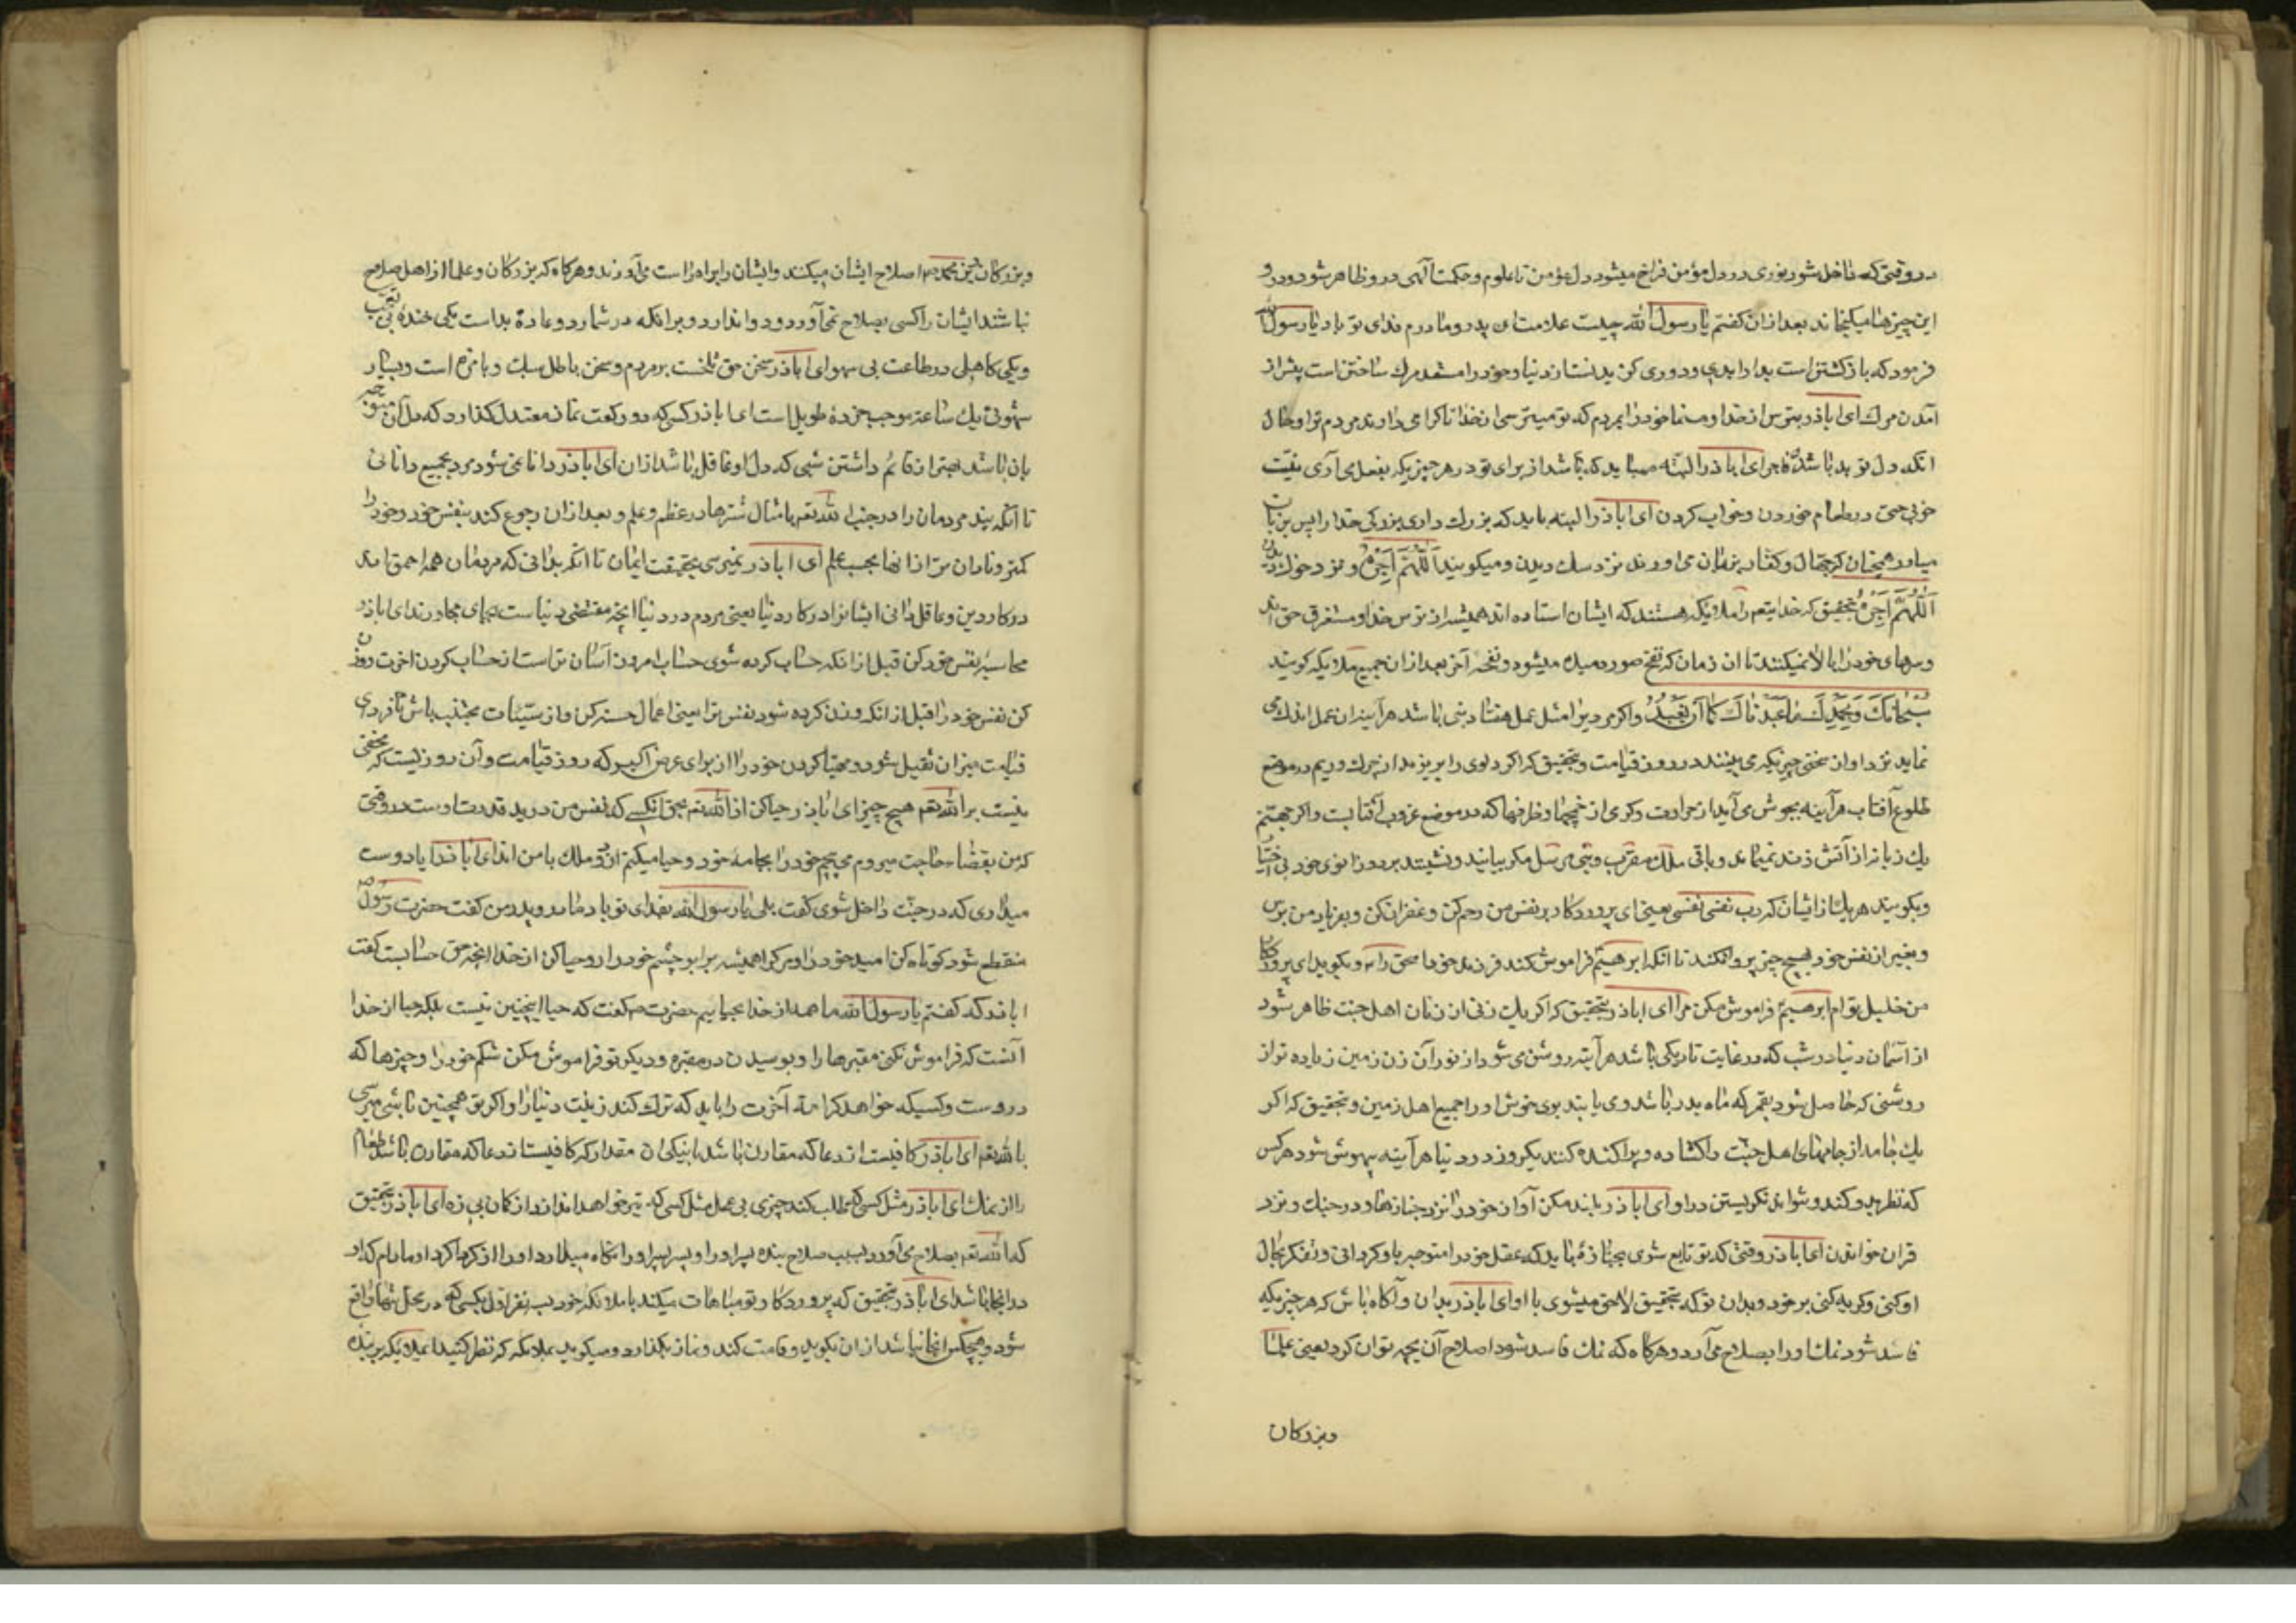 در وقتی که داخل شود نوری در دل مؤمن فراخ میشود دل مؤمن تا علوم و حکمت الهی در و ظاهر شود و در و
این چیزها میکنجاند بعد از ان کفتم یا رسول الله چیست علامت ان پدر و مادرم فدای تو باد یا رسول الله
فرمود که باز کشتن است بدار ابدی و دوری کزیدنست از دنیا و خود را مستعد مرك ساختن است پیش از
آمدن مرك ای اباذر بترس از خدا و منما خود را بمردم که تو میترسی از خدا تا کرامی دارند مردم ترا و حال
انکه دل تو بد باشد و فاجر ای اباذر البته میباید که باشد از برای تو در هر چیزیکه بفعل می آری نیت
خوبی حتی در طعام خوردن و خواب کردن ای اباذر البته باید که بزرك داری بزرکی خدا را پس بزبان
میاور همچنان که جهال و کفار بزبان می اورند نزد سك دیدن و میکویند اَللّٰهُمَّ اَجِزْهُ و نزد خوك دیدن
اَللّٰهُمَّ اَجِزْهُ بتحقیق که خدایتعم را ملایکه هستند که ایشان استاده اند همیشه از ترس خدا و مستغرق حق اند
و سرهای خود را بالا نمیکنند تا ان زمان که نفخ صور دمیده میشود و نفخه آخر بعد از ان جمیع ملایکه کویند
سُبْحَانَكَ وَ بِحَمْدِكَ مَا عَبَدْنَاكَ كَمَا اَنْ نَعْبُدُ و اکر مردیرا مثل عمل هفتاد نبی باشد هر آینه ان عمل اندك می
نماید نزد او از سختی چیزیکه می بینند در روز قیامت و بتحقیق که اکر دلوی را بریزند از چرك و ریم در موضع
طلوع آفتاب هر آینه بجوش می آید از حرارت و کرمی ان مخچمها و ظرفها که در موضع غروب آفتابست و اکر جهنم
یك زبانه از آتش زند نمیماند و باقی ملك مقرب و نبی مرسل مکر بیایند و نشینند بر دو زانوی خود بی اختیار
و بکویند هر یك از ایشان که رب نفسی نفسی یعنی ای پروردکار بر نفس من رحم کن و غفران کن و بفریاد من برس
و بغیر از نفس خود بهیچ چیز پروا نکنند تا انکه ابرهیمؑ فراموش کند فرزند خود اسحق را و بکوید ای پروردکار
من خلیل توام ابرهیمؑ فراموش مکن مرا ای اباذر بتحقیق که اکر یك زنی از زنان اهل جنت ظاهر شود
از آسمان دنیا در شب که در غایت تاریکی باشد هر آینه روشن می شود از نور آن زن زمین زیاده تر از
روشنی که حاصل شود بقمر که ماه بدر باشد و می یابند بوی خوش او را جمیع اهل زمین و بتحقیق که اکر
یك جامه از جامهای اهل جنت را کشاده و پراکنده کنند یکروز در دنیا هر آینه بیهوش شود هر کس
که نظر بدو کند و نتواند نکریستن در او ای اباذر بلند مکن آواز خود را نزد جنازها و در جنك و نزد
قران خواندن ای اباذر وقتی که تو تابع شوی بجنازهٔ باید که عقل خود را متوجه باو کردانی و تفکر بحال
او کنی و کریه کنی بر خود و بدان تو که بتحقیق لاحق میشوی با او ای اباذر بدان و آکاه باش که هر چیزیکه
فاسد شود نمك او را بصلاح می آرد و هرکاه که نمك فاسد شود اصلاح آن بچه توان کرد یعنی علما
وبزرکان
و بزرکان دین محمدی اصلاح ایشان میکنند و ایشان را براه راست می آورند و هرکاه که بزرکان و علما از اهل صلاح
نباشند ایشان را کسی بصلاح نمی آورد و دوا ندارد و برانکه در شما دو عادهٔ بد است یکی خندهٔ بی تعجب
و یکی کاهلی در طاعت بی سهو ای اباذر سخن حق تلخست بر مردم و سخن باطل سبك و با مزه است و بسیار
شهوتی یك ساعته موجب حزن طویل است ای اباذر کسی که دو رکعت نماز معتدل کذارد که دل آن متوجه
بان باشد بهتر از قائم داشتن شبی که دل او غافل باشد از ان ای اباذر دانا نمی شود مرد بجمیع دانائی
تا آنکه بیند مردمان را در جنب الله تعم بامثال شترها در عظم و علم و بعد از ان رجوع کند بنفس خود و خود را
کمتر و نادان تر از انها بحسب علم ای اباذر نمیرسی بحقیقت ایمان تا انکه بدانی که مردمان همه احمق اند
در کار دین و عاقل دانی ایشانرا در کار دنیا یعنی مردم در دنیا انچه مقتضی دنیاست بجای می اورند ای اباذر
محاسبهٔ نفس خود کن قبل از انکه حساب کرده شوی حساب امروز آسان تر است از حساب کردن اخرت و وزن
کن نفس خود را قبل از انکه وزن کرده شود نفس ترا یعنی اعمال حسنه کن و از سیئات مجتنب باش تا فردای
قیامت میزان ثقیل شود و مهیا کردن خود را از برای عرض اکبر که روز قیامت و آن روزیست که مخفی
نیست بر الله تعم هیچ چیز ای اباذر حیا کن از الله تعم بحق انکسی که نفس من در ید قدرت اوست در وقتی
که من بقضاء حاجت میروم می پیچم خود را بجامه خود و حیا میکنم از دو ملك با من اند ای اباذر ایا دوست
میداری که در جنت داخل شوی کفت بلی یا رسول الله بفدای تو باد مادر و پدر من کفت حضرت رسول ص
منقطع شود کوتاه کن امید خود را و مرك را همیشه برابر چشم خود دار و حیا کن از خدا انچه حق حسابست کفت
اباذر که کفتم یا رسول الله ما همه از خدا بحیاییم حضرت ص کفت که حیا اینچنین نیست بلکه حیا از خدا
آنست که فراموش نکنی مقبرها را و بوسیدن در مقبره و دیکر تو فراموش مکن شکم خود را و چیزها که
در وست و کسیکه خواهد کرامت آخرت را باید که ترك کند زینت دنیا را و اکر تو همچنین باشی میرسی
بالله تعم ای اباذر کافیست از دعا که مقارن باشد با نیکی ان مقدار که کافیست از دعا که مقارن باشد طعام
را از نمك ای اباذر مثل کسی که طلب کند چیزی بی عمل مثل کسی که تیر خواهد اندازد از کمان بی زه ای اباذر بتحقیق
که الله تعم بصلاح می آورد بسبب صلاح بنده پسر او را و پسر پسر او را و نکاه میدارد او را
در انجا باشد ای اباذر بتحقیق که پروردکار تو مباهات میکند با ملائکه خود بسه نفر اول بکسی که در محل تنها واقع
شود و هیچکس انجا نباشد اذان بکوید و قامت کند و نماز بکذارد و میکوید بملائکه که نظر کنید ای ملایکه بر بنده